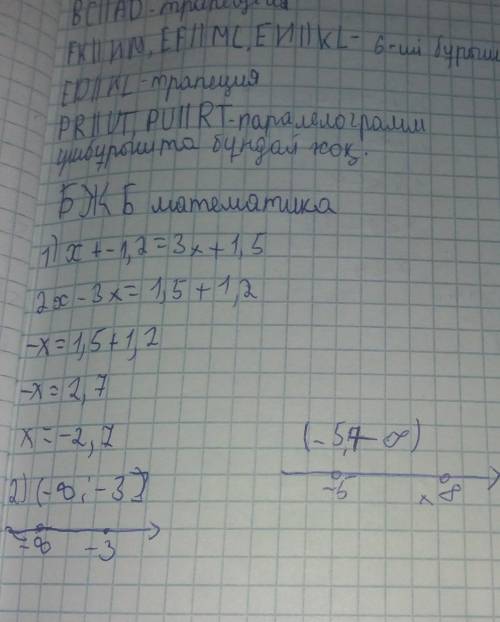 BC||AD-трапеция
FK||ИМ, EF||ML, EИ||KL- 6-ший бурыш
ED||KL-трапеция
PR||UT, PU||RT-паралелограмм
үшбұрышта бундай жоқ.
БЖБ математика
1) x+-1,2=3x+1,5
2x-3x=1,5+1,2
-x=1,5+1,2
-x=2,7
x=-2,7
(-5,+∞)
-5 x ∞
2) (-∞;-3]
-∞ -3